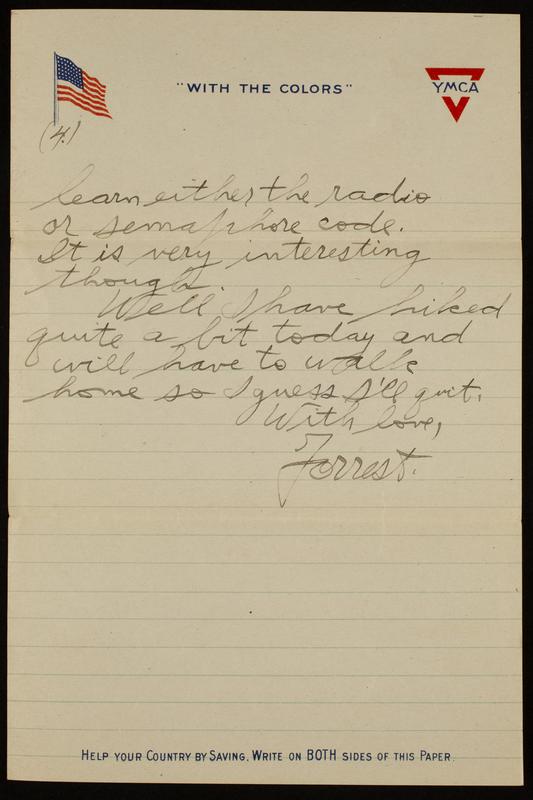 "WITH THE COLORS"
YMCA
(4.)
learn either the radio
or semaphore code.
It is very interesting
though.
Well I have hiked
quite a bit today and
will have to walk
home so I guess I'll quit.
With love,
Forrest.
HELP YOUR COUNTRY BY SAVING. WRITE ON BOTH SIDES OF THIS PAPER.